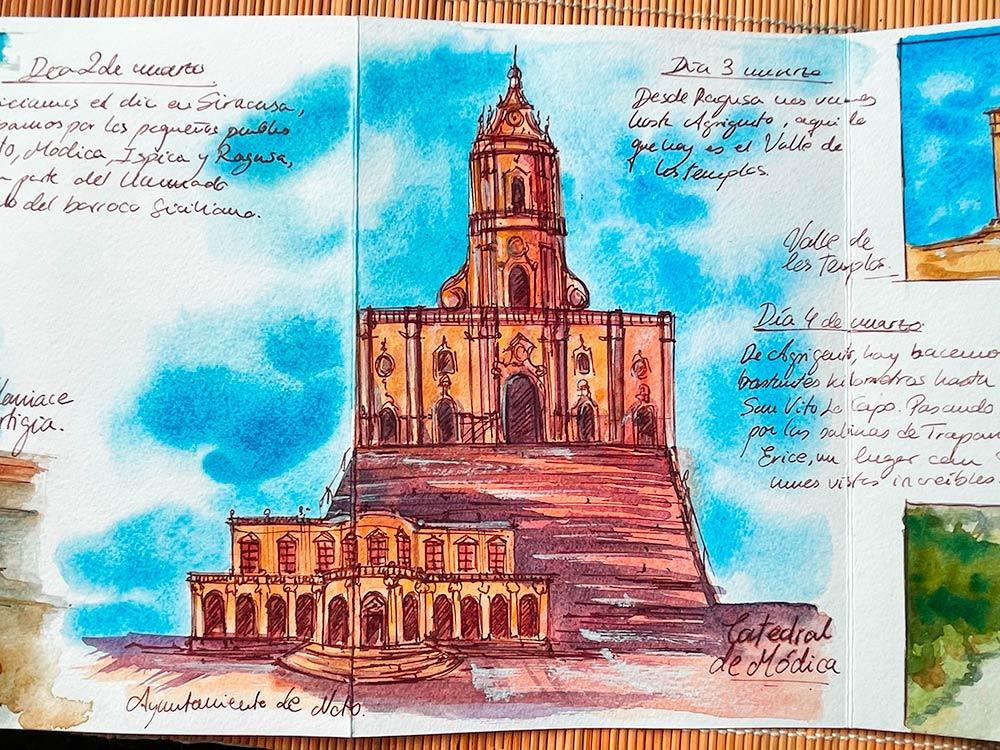 Día 2 de marzo
iciamos el dia en Siracusa,
pamos por los pequeños pueblos
to, Modica, Ispica y Ragusa,
parte del llamado
o del barroco siciliano.
Maniace
rtigia.
Ayuntamiento de Noto.
Día 3 marzo
Desde Ragusa nos vamos
hasta Agrigento, aqui lo
que hay es el Valle de
los templos.
Valle de
los Templos.
Día 4 de marzo.
De Agrigento, hoy hacemos
bastantes kilometros hasta
San Vito Lo Capo. Pasando
por las salinas de Trapani
Erice, un lugar con
unas vistas increíbles.
Catedral
de Módica